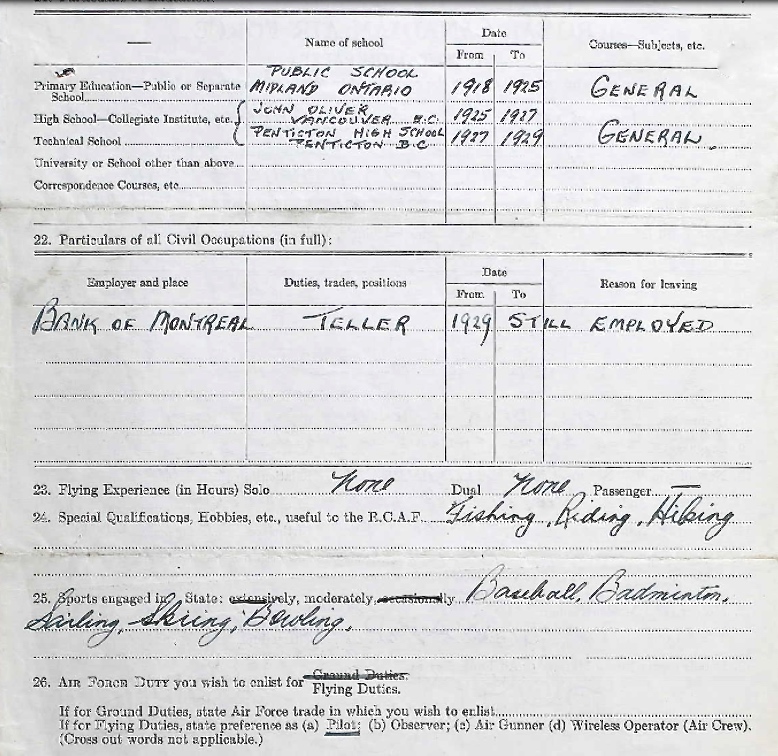 Name of school
Date
From To
Courses—Subjects, etc.
Primary Education—Public or Separate School
PUBLIC SCHOOL
MIDLAND ONTARIO 1918 1925 GENERAL
High School—Collegiate Institute, etc.
JOHN OLIVER
VANCOUVER B.C. 1925 1927
Technical School
PENTICTON HIGH SCHOOL
PENTICTON B.C 1927 1929 GENERAL.
University or School other than above
Correspondence Courses, etc
22. Particulars of all Civil Occupations (in full):
Employer and place Duties, trades, positions
Date
From To
Reason for leaving
BANK OF MONTREAL TELLER 1929 STILL EMPLOYED
23. Flying Experience (in Hours) Solo None Dual None Passenger —
24. Special Qualifications, Hobbies, etc., useful to the R.C.A.F. Fishing, Riding, Hiking
25. Sports engaged in. State: extensively, moderately, occasionally Baseball, Badminton,
Sailing, Skiing, Bowling.
26. AIR FORCE DUTY you wish to enlist for Ground Duties.
Flying Duties.
If for Ground Duties, state Air Force trade in which you wish to enlist
If for Flying Duties, state preference as (a) Pilot; (b) Observer; (c) Air Gunner (d) Wireless Operator (Air Crew).
(Cross out words not applicable.)